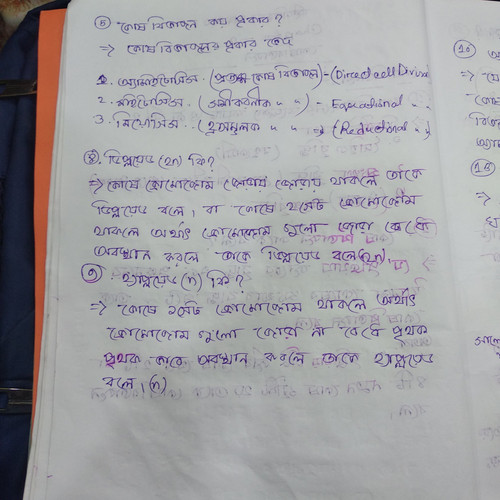 ৫ কোষ বিভাজন কয় প্রকার?
⇒ কোষ বিভাজনের প্রকার ভেদ
1. অ্যামাইটোসিস. (প্রত্যক্ষ কোষ বিভাজন) - (Direct cell Divisi
2. মাইটোসিস. (সমীকরণিক " ") - Equational " "
3. মিয়োসিস. (হ্রাসমূলক " " ⇒ (Reductional " ")
৪. ডিপ্লয়েড (2n) কি?
⇒ কোষে ক্রোমোজোম জোড়ায় জোড়ায় থাকলে তাকে
ডিপ্লয়েড বলে, বা কোষে ২সেট ক্রোমোজোম
থাকলে অর্থাৎ ক্রোমোজোম গুলো জোড়া বেধে
অবস্থান করলে তাকে ডিপ্লয়েড বলে (2n),
৩ হ্যাপ্লয়েড (n) কি?
⇒ কোষে ১সেট ক্রোমোজোম থাকলে অর্থাৎ
ক্রোমোজোম গুলো জোড়া না বেধে পৃথক
পৃথক ভাবে অবস্থান করলে তাকে হ্যাপ্লয়েড
বলে, (n)